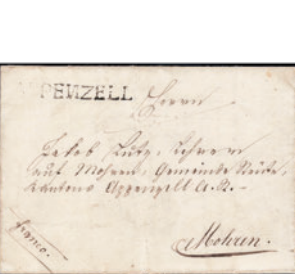 APPENZELL Herrn
Jakob Lutz, Lehrer
auf Mohren, Gemeinde Reute,
Kantons Appenzell A. R. -
franco.
Mohren.